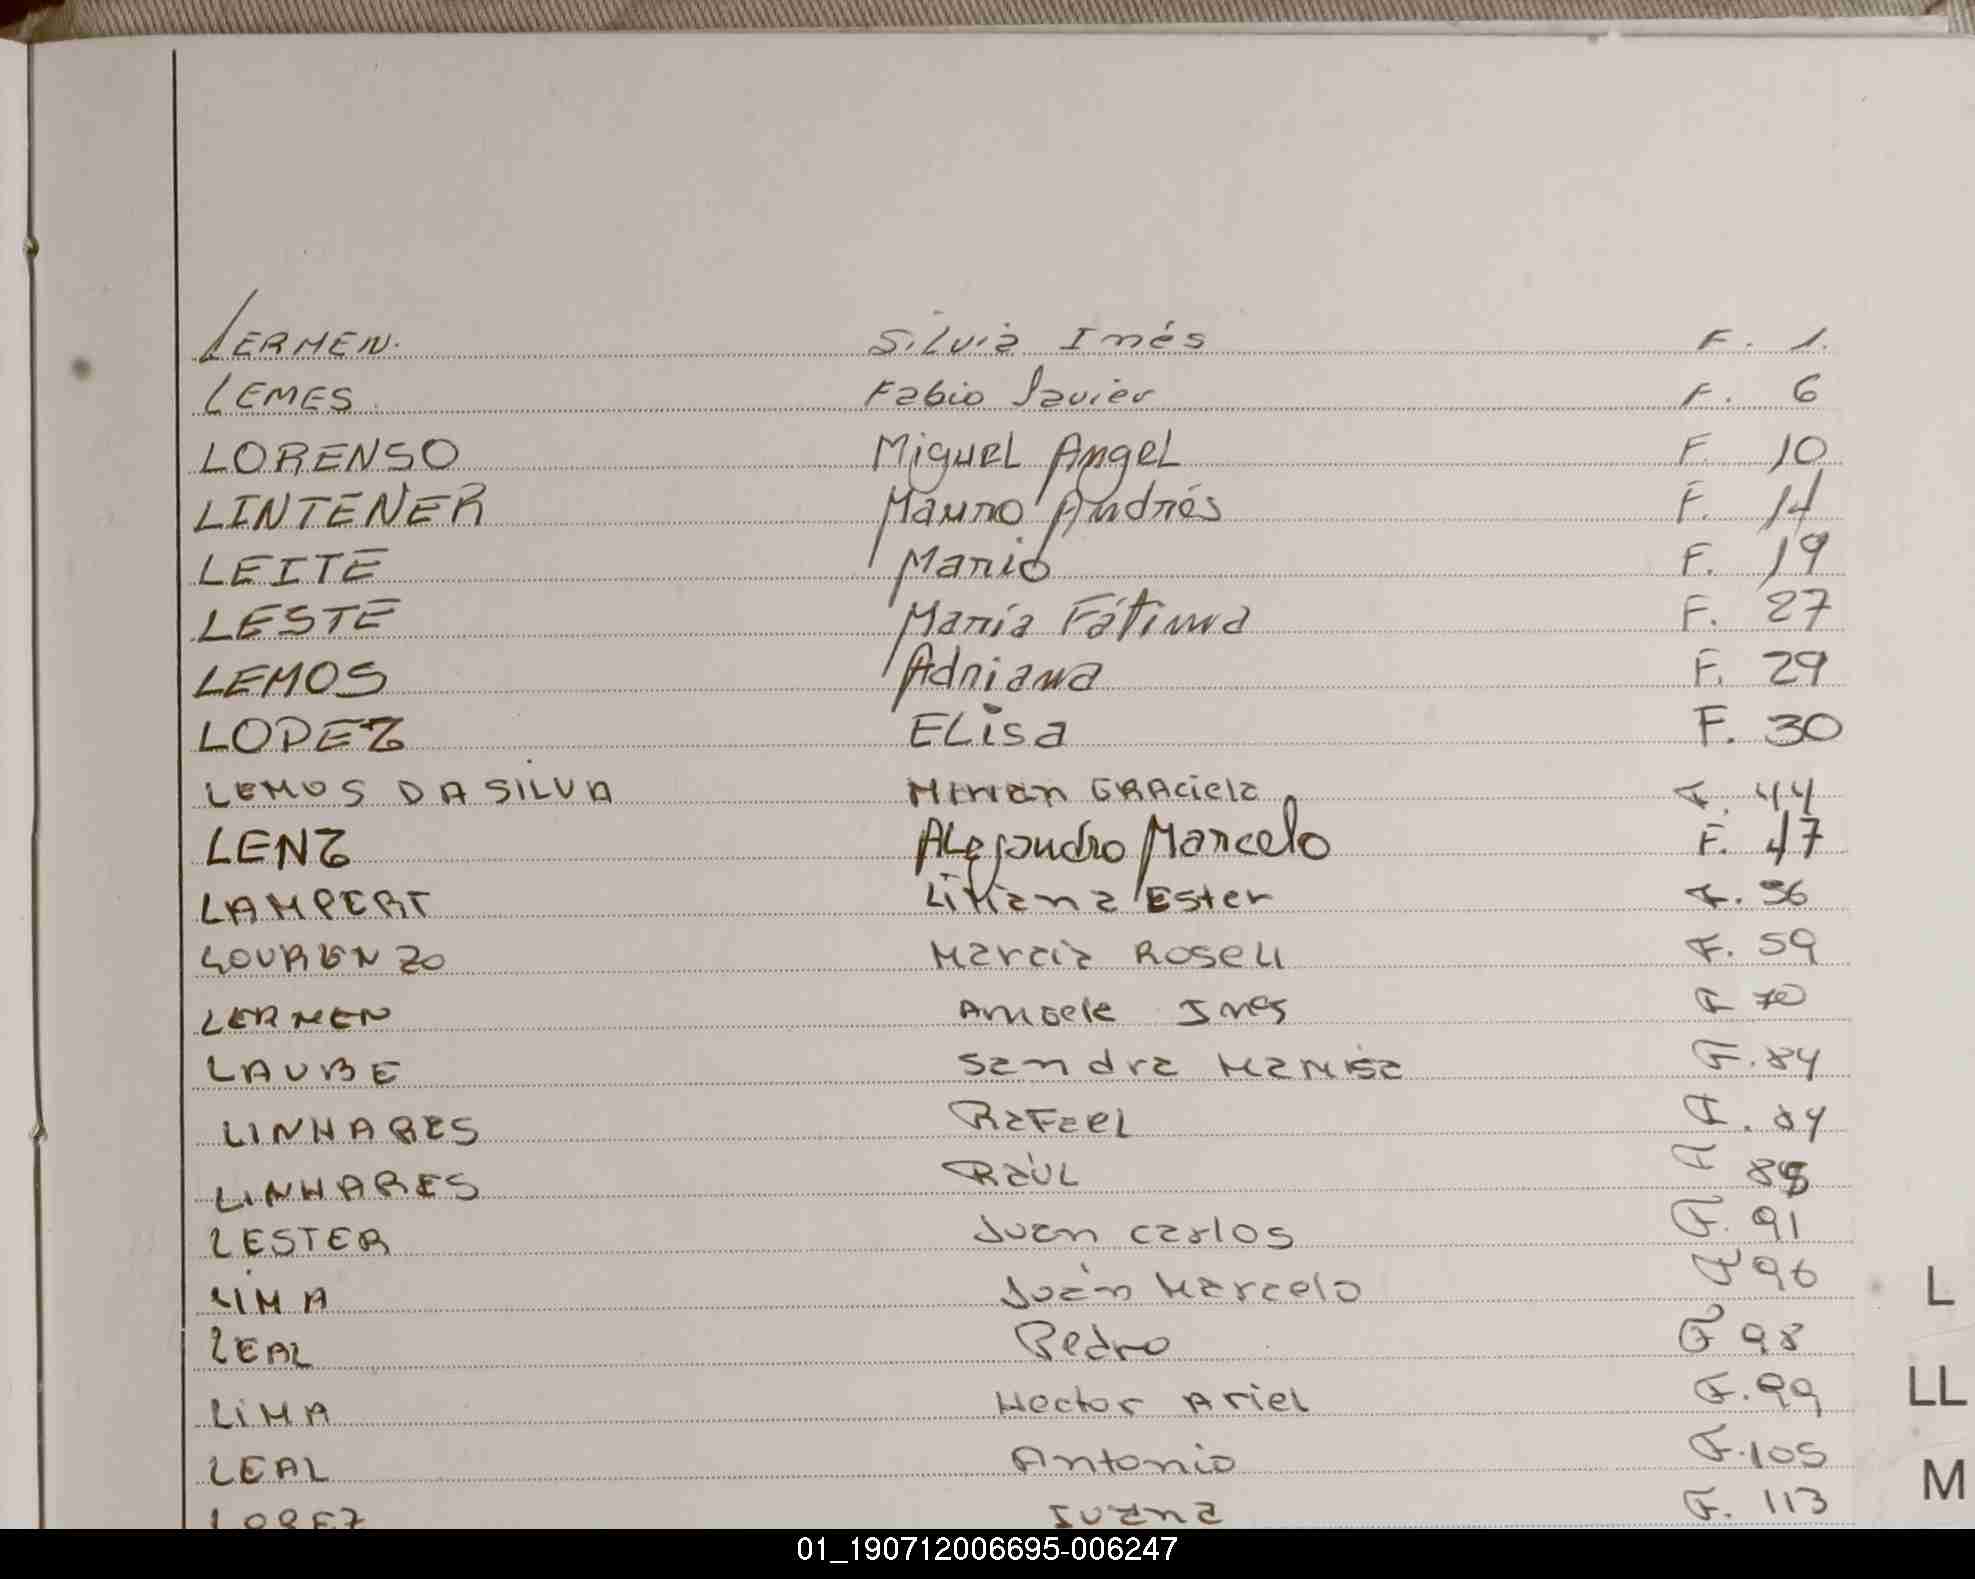 LERMEN. Silvia Inés F. 1.
LEMES Fabio Javier F. 6
LORENSO Miguel Angel F. 10
LINTENER Mauro Andrés F. 14
LEITE Mario F. 19
LESTE María Fátima F. 27
LEMOS Adriana F. 29
LOPEZ ELisa F. 30
LEMOS DA SILVA Mirian GRAciela F. 44
LENZ ALejandro Marcelo F. 47
LAMPERT Liliana Ester F. 56
LOURENZO Marcia Roseli F. 59
LERMEN Ines F 70
LAUBE Sandra Marisa F. 84
LINHARES RaFaeL F. 84
LINHARES RaúL F
LESTER Juan carlos F. 91
LIMA Juan Marcelo F 96
LEAL Pedro F 98
LIMA Hector Ariel F. 99
LEAL Antonio F. 105
LOPEZ Juana F. 113
L
LL
M
01_190712006695-006247